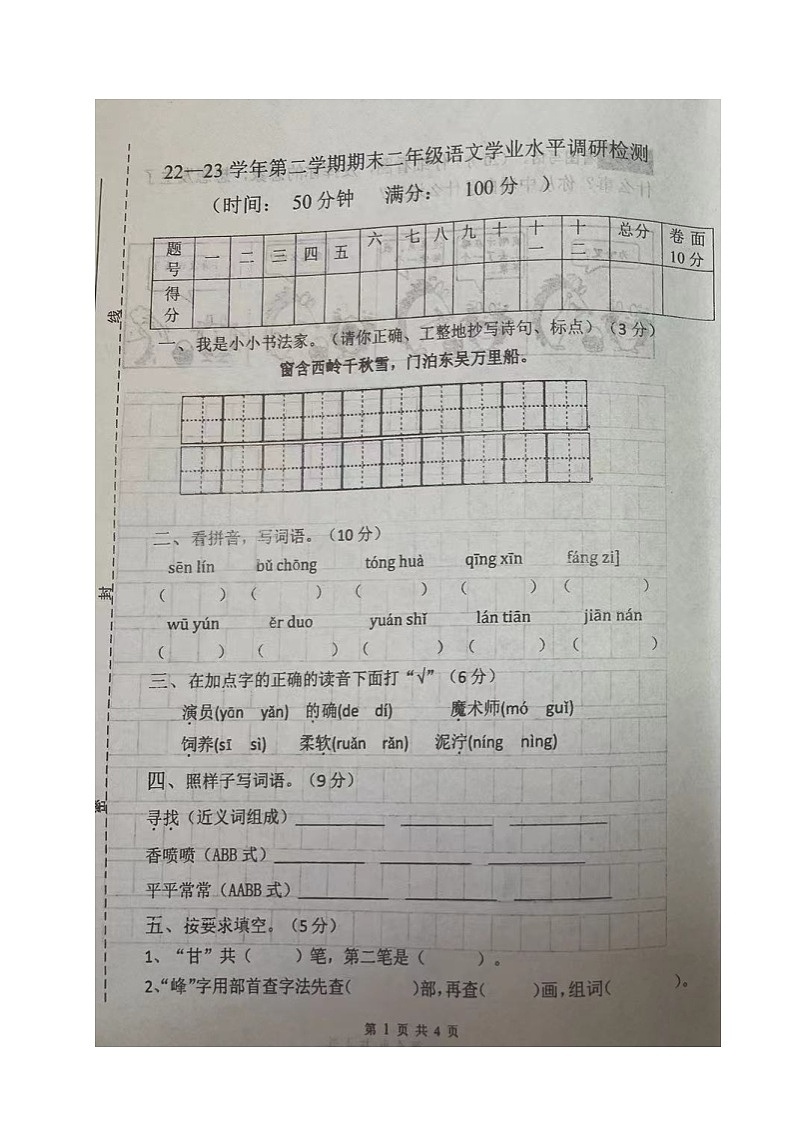 22—23学年第二学期期末二年级语文学业水平调研检测
（时间： 50分钟 满分： 100分 ）
题号 一 二 三 四 五 六 七 八 九 十 十一 十二 总分 卷面10分
得分
一、我是小小书法家。（请你正确、工整地抄写诗句、标点）（3分）
窗含西岭千秋雪，门泊东吴万里船。
二、看拼音，写词语。（10分）
sēn lín bǔ chōng tóng huà qīng xīn fáng zi]
（ ）（ ）（ ）（ ）（ ）
wū yún ěr duo yuán shǐ lán tiān jiān nán
（ ）（ ）（ ）（ ）（ ）
三、在加点字的正确的读音下面打“√”（6分）
演员(yān yǎn) 的确(de dí) 魔术师(mó guǐ)
饲养(sī sì) 柔软(ruǎn rǎn) 泥泞(níng nìng)
四、照样子写词语。（9分）
寻找（近义词组成）
香喷喷（ABB式）
平平常常（AABB式）
五、按要求填空。（5分）
1、“甘”共（ ）笔，第二笔是（ ）。
2、“峰”字用部首查字法先查( )部,再查( )画,组词( )。
第1页共4页
线
封
密